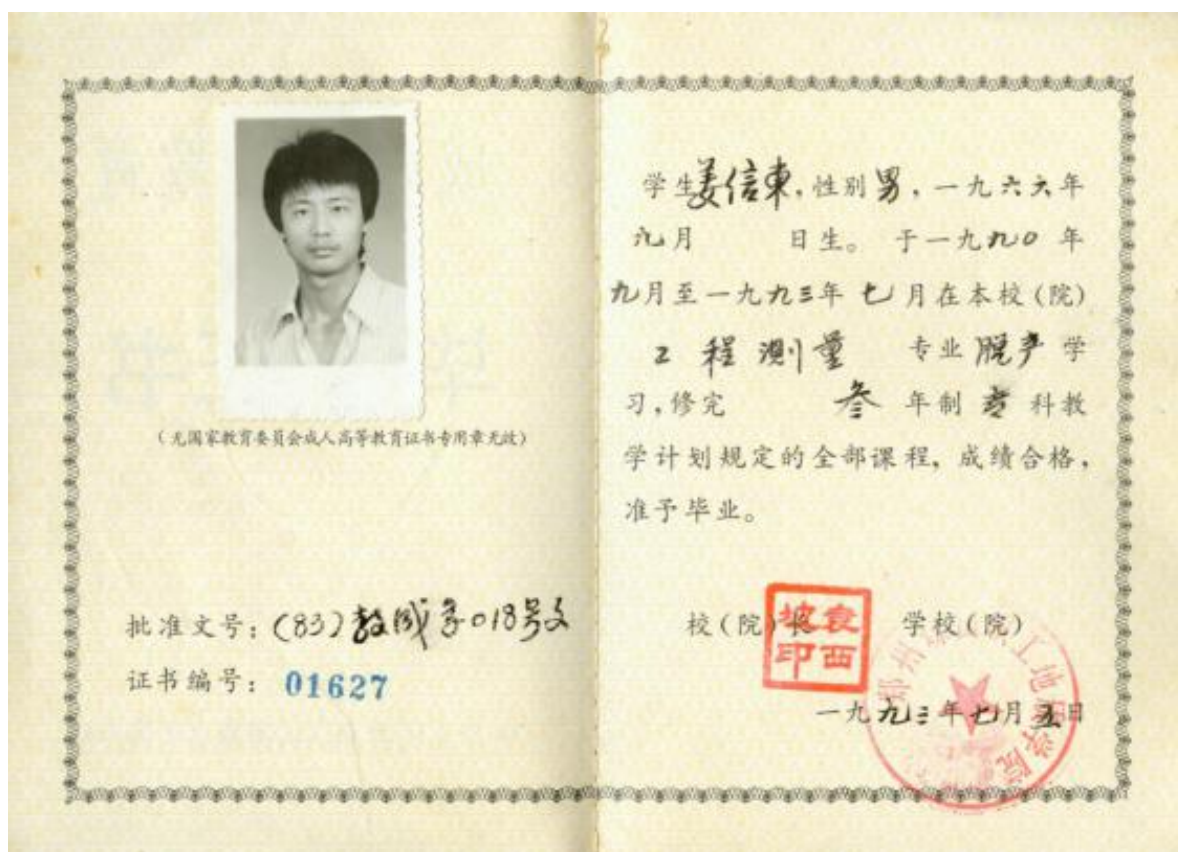 (无国家教育委员会成人高等教育证书专用章无效)
批准文号：(83)教成字018号文
证书编号：01627
学生姜信東，性别男，一九六六年
九月 日生。于一九九〇年
九月至一九九三年七月在本校(院)
工程测量 专业脱产学
习，修完 叁 年制专科教
学计划规定的全部课程，成绩合格，
准予毕业。
校(院)长 学校(院)
袁西坡印
一九九三年七月五日